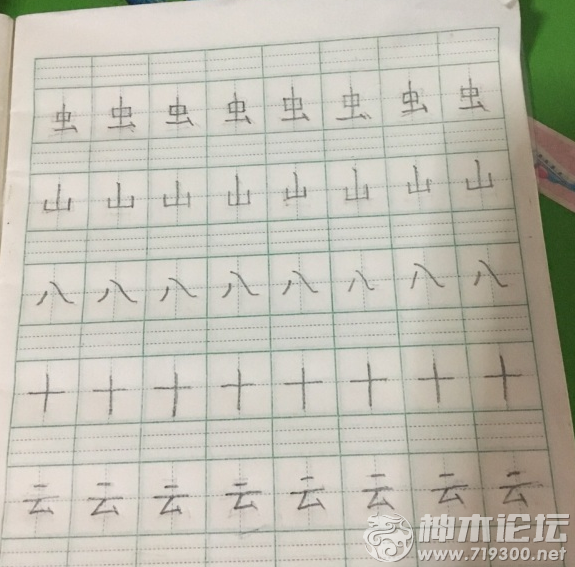 虫虫虫虫虫虫虫虫
山山山山山山山山
八八八八八八八八
十十十十十十十十
云云云云云云云云
神木论坛
www.719300.net